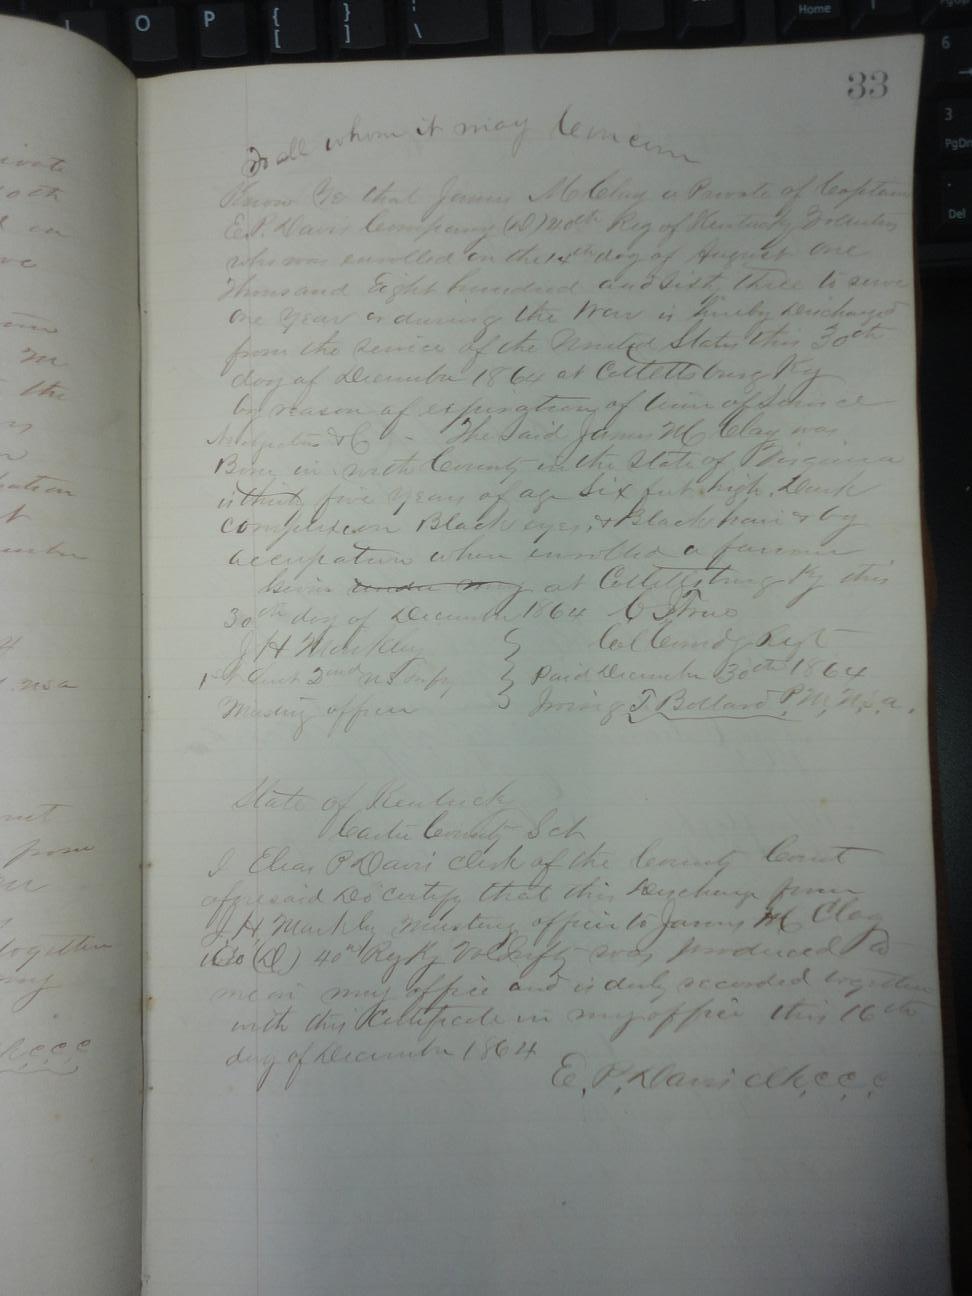 33
To all whom it may Concern
Know Ye that James McClay a Private of Captain
E.P. Davis Company (D) 40th Reg of Kentucky Volunteers
who was enrolled on the 14th day of August One
Thousand Eight hundred and Sixty three to serve
one Year or during the War is hereby Discharged
from the Service of the United States this 30th
day of December 1864 at Cattettsburg Ky
by reason of expiration of time of Service
&C - The Said James McClay was
Born in County in the State of Virginia
is thirty five Years of age Six feet high, Dark
complexion Black eyes, & Black hair & by
occupation when enrolled a farmer
Given under my at Cattettsburg Ky this
30th day of December 1864 C J True
J H Markley } Col Comdg Regt
1st Lieut 2nd } Paid December 30th 1864
Musting officer } Irving T. Bollard P.M, U,S,a.
State of Kentucky
Carter County Sct
I Elias P Davis clerk of the County Court
afresaid Do certify that this Discharge from
J,H, Markley Musting officer to James McClay
Co (D) 40th Reg Ky was produced to
me in my office and is duly recorded together
with this Certificate in my office this 16th
day of December 1864
E, P, Davis clk, c, c, c
O
P
{
[
}
]
|
\
Home
6
3
PgDn
.
Del